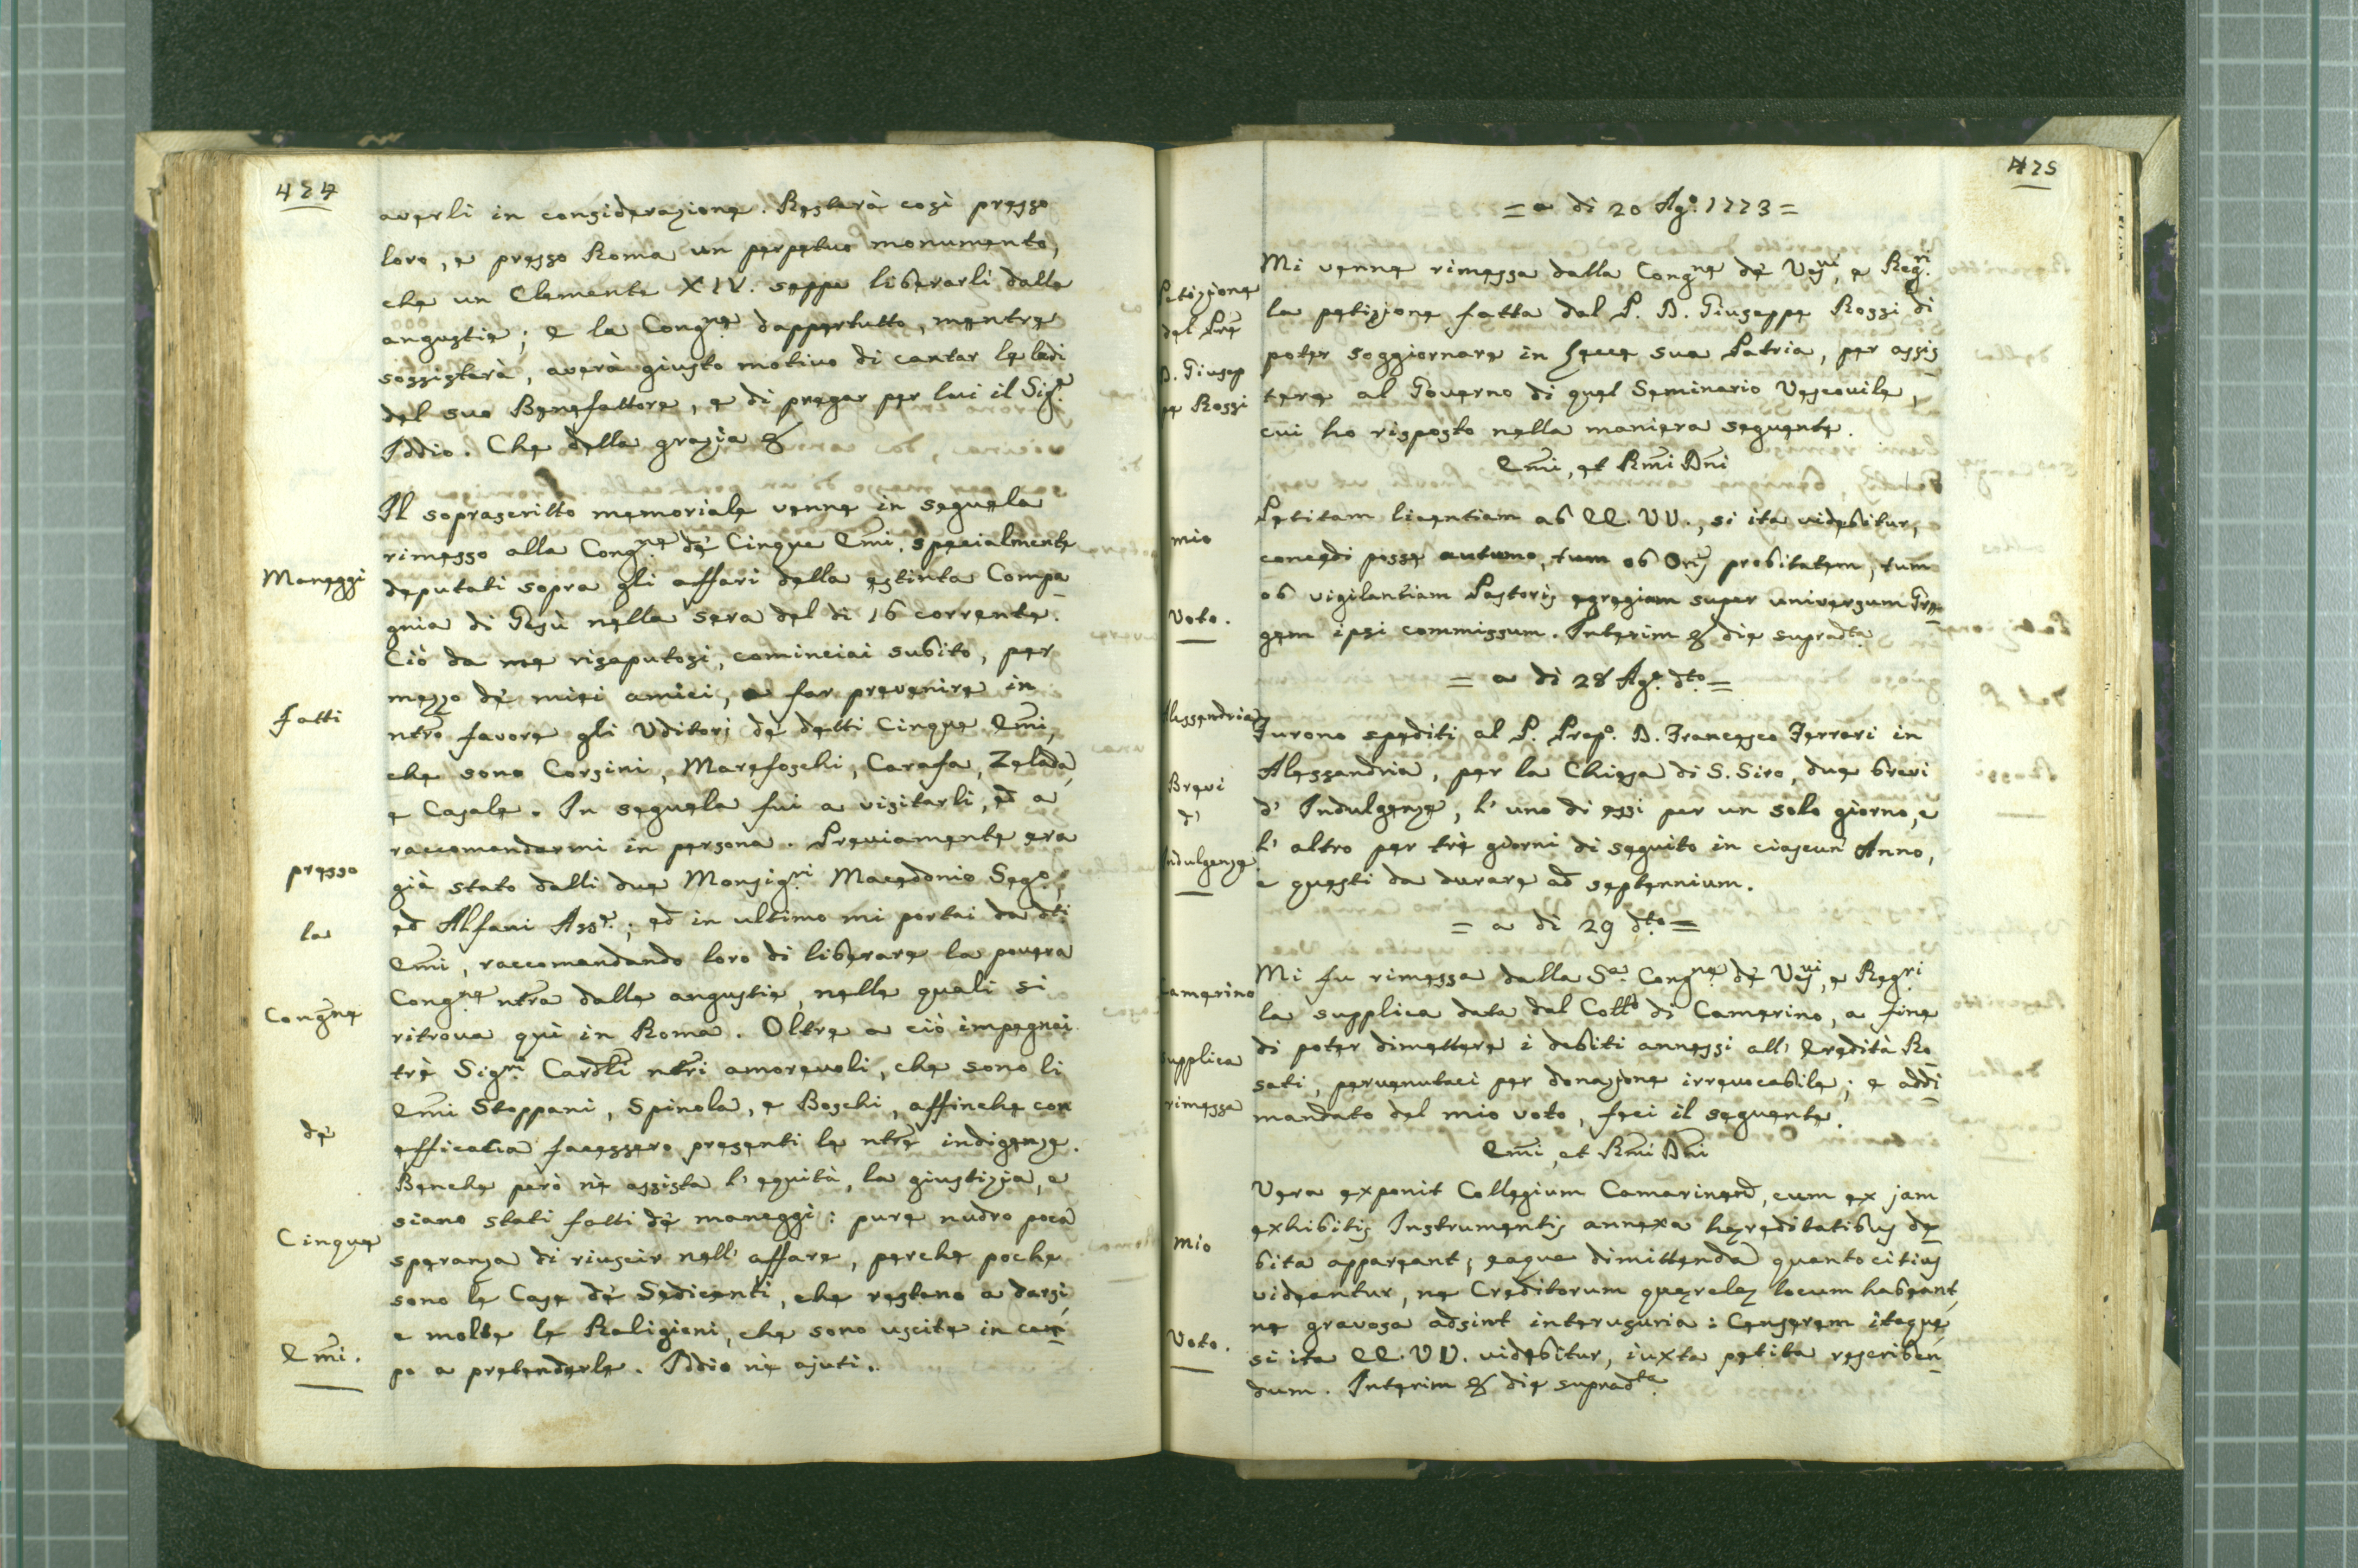 424
averli in considerazione. Resterà così presso
loro, e presso Roma un perpetuo monumento,
che un Clemente XIV. seppe liberarli dalle
angustie; e la Congne dappertutto, mentre
sossisterà, averà giusto motivo di cantar le lodi
del suo Benefattore, e di pregar per lui il Sigre
Iddio. Che della grazia &
Il soprascritto memoriale venne in seguela
rimesso alla Congne dè Cinque Emi, specialmente
Maneggi
deputati sopra gli affari della estinta Compa
gnia di Gesù nella sera del di 16 corrente.
Ciò da me risaputosi, cominciai subito, per
mezzo dè miei amici, a far prevenire in
fatti
ntro favore gli Uditorj dè detti Cinque Emi,
che sono Corsini, Marefoschi, Carafa, Zelada,
e Casale. In seguela fui a visitarli, ed a
raccomandarmi in persona. Previamente era
presso
già stato dalli due Monsigri Macedonio Sego,
la
ed Alfani Assre; ed in ultimo mi portai da dti
Emi, raccomandando loro di liberare la povera
Congne
Congne ntra dalle angustie, nelle quali si
ritrova quì in Roma. Oltre a ciò impegnai
trè Sigri Cardli ntri amorevoli, che sono li
Emi Stoppani, Spinola, e Boschi, affinche con
dè
efficacia facessero presenti le ntre indigenze.
Benche però nè assista l' equità, la giustizia, e
siano stati fatti dè maneggi: pure nudro poca
Cinque
speranza di riuscir nell' affare, perche poche
sono le Case dè Sedicenti, che restano a darsi,
e molte le Religioni, che sono uscite in cam
Emi.
po a pretenderle. Iddio nè ajuti.
425
= a di 20 Ago. 1773 =
Mi venne rimessa dalla Congne dè Vevi, e Regri
Petizione
la petizione fatta dal P. D. Giuseppe Rossi di
del Pre
poter soggiornare in Lecce sua Patria, per assis
D. Giusep
tere al Governo di quel Seminario Vescovile,
pe Rossi
cui ho risposto nella maniera seguente.
Emi, et Rmi Dni
Petitam licentiam ab EE. VV., si ita videbitur,
mio
concedi posse autumo, tum ob Oris probitatem, tum
ob vigilantiam Pastoris egregiam super universum Gre
Voto.
gem ipsi commissum. Interim & die supradta
= a di 28 Ago. dto =
Alessandria
Furono spediti al P. Propo. D. Francesco Ferrari in
Alessandria, per la Chiesa di S. Siro, due brevi
Brevi
d' Indulgenze, l' uno di essi per un solo giorno, e
d'
l' altro per trè giorni di seguito in ciascun Anno,
Indulgenze
e questi da durare ad septennium.
= a di 29 dto =
Mi fu rimessa dalla Sa. Congne dè Vevi, e Regri
Camerino
la supplica data dal Collo di Camerino, a fine
di poter dimettere i debiti annessi all' Eredità Ro
supplica
sati, pervenutaci per donazione irrevocabile; e addi
rimessa
mandato del mio voto, feci il seguente.
Emi, et Rmi Dni
Vera exponit Collegium Camarinen, cum ex jam
exhibitis Instrumentis annexa hereditatibus de
mio
bita appareant; eaque dimittenda quanto citius
videantur, ne Creditorum querelez locum habeant,
ne gravosa adsint interusuria: Censerem itaque,
Voto.
si ita EE. VV. videbitur, iuxta petita rescriben
dum. Interim & die supradta